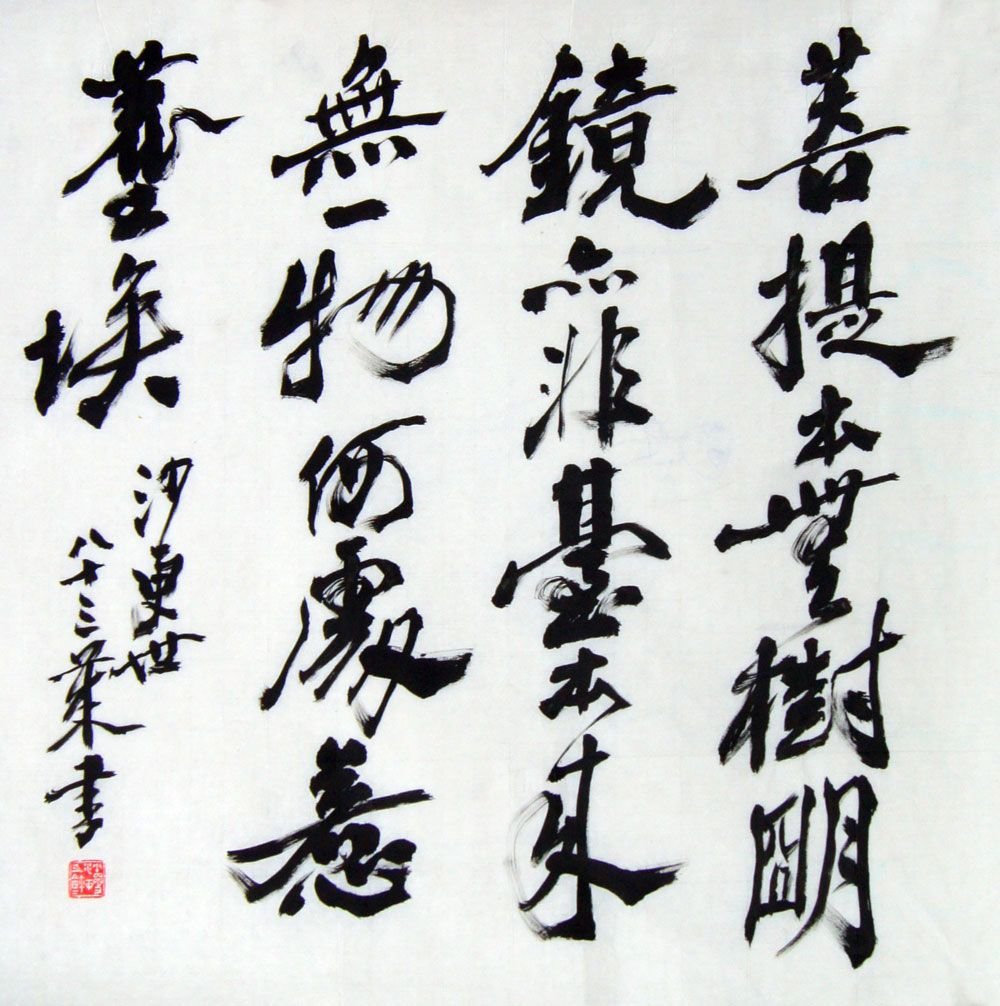 菩提本無樹明
鏡亦非臺本來
無一物何處惹
塵埃
沙更世
八十書